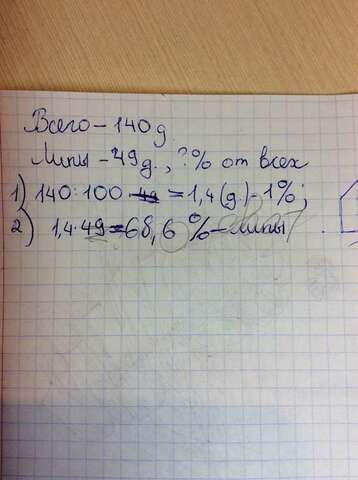 Всего – 140 д.
Липы – 49 д., ? % от всех
1) 140 : 100 = 1,4 (д.) – 1%;
2) 1,4 · 49 = 68,6 % – липы.